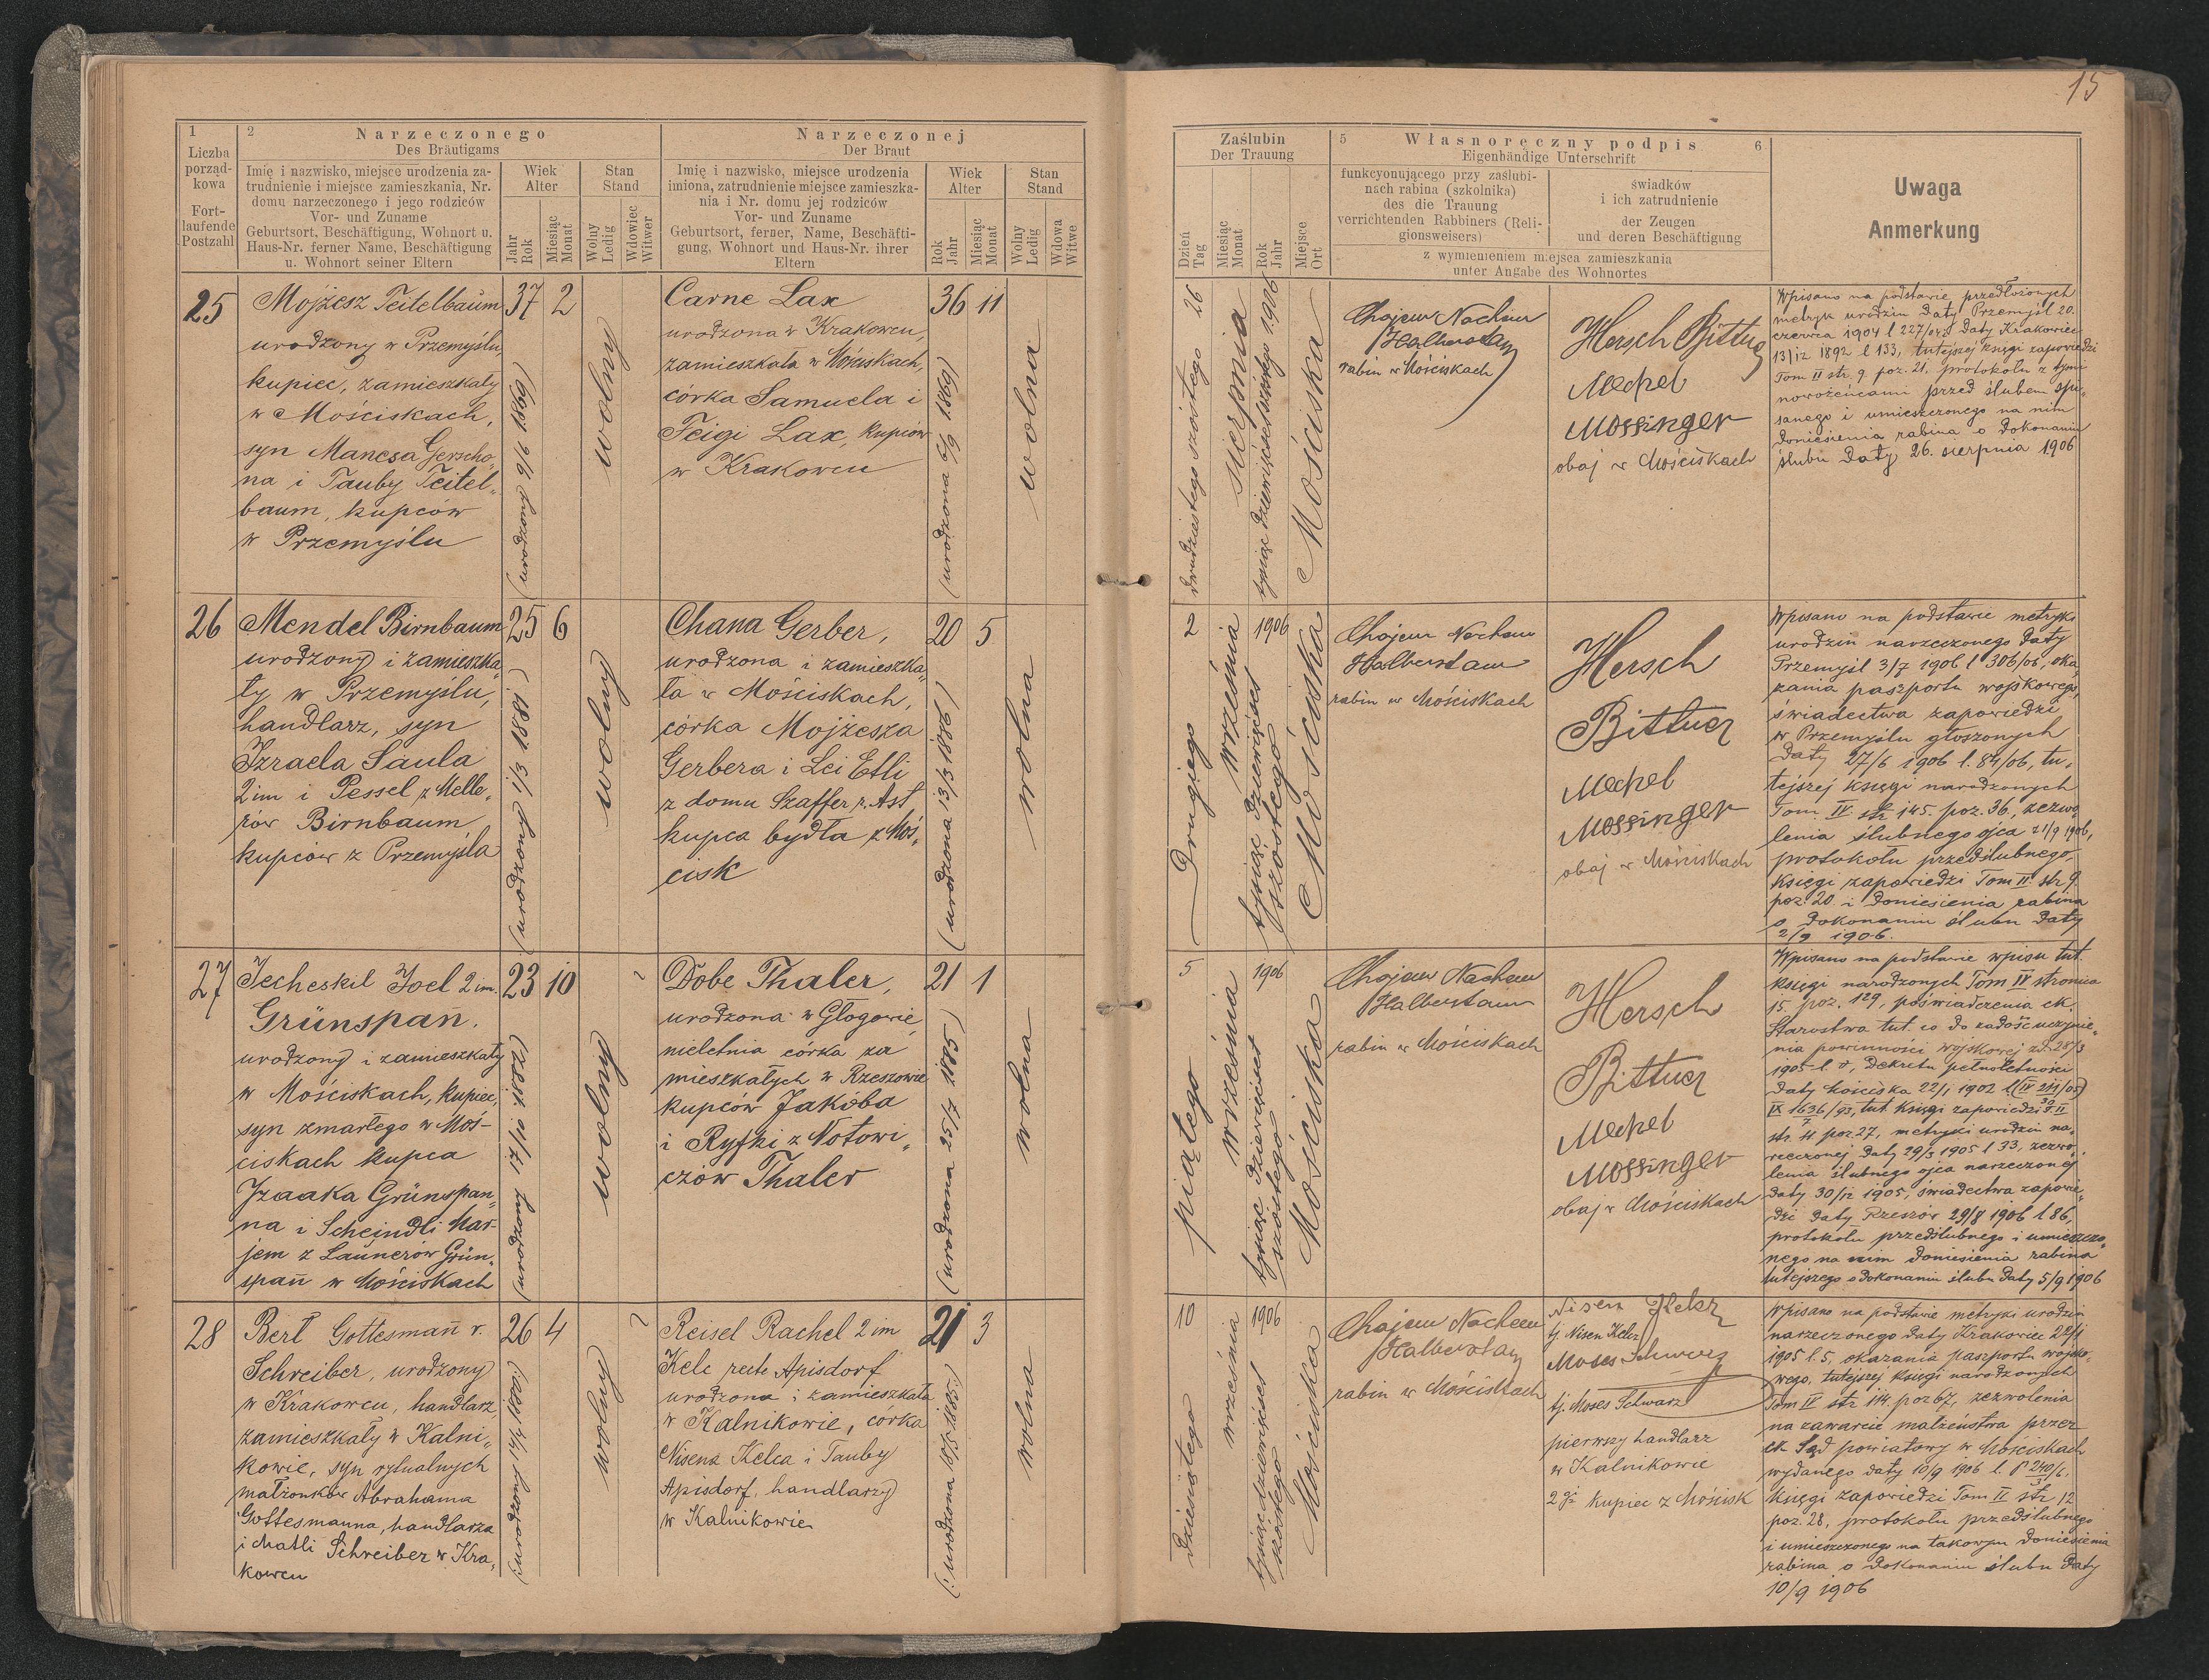 15
1
Liczba
porząd-
kowa
Fort-
laufende
Postzahl
2
Narzeczonego
Des Bräutigams
Imię i nazwisko, miejsce urodzenia za-
trudnienie i miejsce zamieszkania, Nr.
domu narzeczonego i jego rodziców
Vor- und Zuname
Geburtsort, Beschäftigung, Wohnort u.
Haus-Nr. ferner Name, Beschäftigung
u. Wohnort seiner Eltern
Wiek
Alter
Jahr
Rok
Miesiąc
Monat
Stan
Stand
Wolny
Ledig
Wdowiec
Witwer
Narzeczonej
Der Braut
Imię i nazwisko, miejsce urodzenia
imiona, zatrudnienie miejsce zamieszka-
nia i Nr. domu jej rodziców
Vor- und Zuname
Geburtsort, ferner, Name, Beschäfti-
gung, Wohnort und Haus-Nr. ihrer
Eltern
Wiek
Alter
Rok
Jahr
Miesiąc
Monat
Stan
Stand
Wolny
Ledig
Wdowa
Witwe
Zaślubin
Der Trauung
Dzień
Tag
Miesiąc
Monat
Rok
Jahr
Miejsce
Ort
5 Własnoręczny podpis 6
Eigenhändige Unterschrift
funkcyonującego przy zaślubi-
nach rabina (szkolnika)
des die Trauung
verrichtenden Rabbiners (Reli-
gionsweisers)
świadków
i ich zatrudnienie
der Zeugen
und deren Beschäftigung
z wymienieniem miejsca zamieszkania
unter Angabe des Wohnortes
Uwaga
Anmerkung
25
Mojżesz Teitelbaum
urodzony w Przemyślu,
kupiec, zamieszkały
w Mościskach,
syn Manesa Gerscho„
na i Tauby Teitel„
baum, kupców
w Przemyślu
37 2
(urodzony 16/6 1869)
wolny
Carne Lax
urodzona w Krakowcu,
zamieszkała w Mościskach,
córka Samuela i
Feigi Lax, kupców
w Krakowcu
36 11
(urodzona 6/9 1869)
wolna
26
dwudziestego szóstego
sierpnia
tysiąc dziewięćset szóstego 1906
Mościska
Chajem Nachem
Halberstam
rabin w Mościskach
Hersch Bittner
Mechel
Mossinger
obaj w Mościskach
Wpisano na podstawie przedłożonych
metryk urodzin daty Przemyśl 20.
czerwca 1904 l 227/04, daty Krakowiec
13/12 1892 l 133, tutejszej księgi zapowiedzi
Tom II str. 9. poz. 21, protokołu z tymi
nowożeńcami przed ślubem spi„
sanego i umieszczonego na nim
doniesienia rabina o dokonaniu
ślubu daty 26. sierpnia 1906
26
Mendel Birnbaum
urodzony i zamieszka„
ły w Przemyślu,
handlarz, syn
Izraela Saula
2 im i Pessel z Melle„
rów Birnbaum
kupców z Przemyśla
25 6
(urodzony 1/3 1881)
wolny
Chana Gerber,
urodzona i zamieszka„
ła w Mościskach,
córka Mojżesza
Gerbera i Lei Etli
z domu Szaffer r. Ast
kupca bydła z Moś„
cisk
20 5
(urodzona 13/3 1886)
wolna
2
Drugiego
września
1906
tysiąc dziewięćset
szóstego
Mościska
Chajem Nachem
Halberstam
rabin w Mościskach
Hersch
Bittner
Mechel
Mossinger
obaj w Mościskach
Wpisano na podstawie metryki
urodzin narzeczonego daty
Przemyśl 3/7 1906 l 306/06, oka„
zania paszportu wojskowego,
świadectwa zapowiedzi
w Przemyślu głoszonych
daty 27/6 1906 l. 84/06, tu„
tejszej księgi narodzonych
Tom. IV str 145. poz. 36, zezwo„
lenia ślubnego ojca 21/9 1906,
protokołu przedślubnego,
księgi zapowiedzi Tom II str 9.
poz. 20. i doniesienia rabina
o dokonaniu ślubu daty
2/9 1906.
27
Jecheskil Joel 2 im.
Grünspan.
urodzony i zamieszkały
w Mościskach, kupiec,
syn zmarłego w Moś-
ciskach kupca
Izaaka Grünspan„
na i Scheindli Mar-
jem z Launerów Grün„
span w Mościskach
23 10
(urodzony 17/10 1882)
wolny
Dobe Thaler,
urodzona w Głogowie,
nieletnia córka za
mieszkałych w Rzeszowie
kupców Jakóba
i Ryfki z Notowi„
czów Thaler
21 1
(urodzona 25/7 1885)
wolna
5
piątego
września
1906
tysiąc dziewięćset
szóstego
Mościska
Chajem Nachem
Halberstam
rabin w Mościskach
Hersch
Bittner
Mechel
Mossinger
obaj w Mościskach
Wpisano na podstawie wpisu tut.
księgi narodzonych Tom IV stronica
15. poz. 129, poświadczenia ck.
Starostwa tut. co do zadośćuczynie„
nia powinności wojskowej z d. 28/3
1905 l. d, dekretu pełnoletności
daty Mościska 22/1 1902
tut. księgi zapowiedzi T. II
str. 4 poz 27, metryki urodzin na„
rzeczonej daty 29/3 1905 l 33, zezwo„
lenia ślubnego ojca narzeczonej
daty 30/12 1905, świadectwa zapowie„
dzi daty Rzeszów 29/8 1906 l 86,
protokołu przedślubnego i umieszczo„
nego na nim doniesienia rabina
tutejszego o dokonaniu ślubu daty 5/9 1906
28
Berl Gottesmann r.
Schreiber, urodzony
w Krakowcu, handlarz,
zamieszkały w Kalni„
kowie, syn rytualnych
małżonków Abrahama
Gottesmanna, handlarza
i Matli Schreiber w Kra„
kowcu
26 4
(:urodzony 14/4 1880:)
wolny
Reisel Rachel 2 im
Kelc recte Apisdorf
urodzona i zamieszkała
w Kalnikowie, córka
Nisena Kelca i Tauby
Apisdorf, handlarzy
w Kalnikowie
21 3
(:urodzona 18/5 1885:)
wolna
10
dziesiątego
września
1906
tysiąc dziewięćset
szóstego
Mościska
Chajem Nachem
Halberstam
rabin w Mościskach
Nisen Kelcz
tj. Nisen Kelcz
Moses Schwarz
tj. Moses Schwarz
pierwszy handlarz
w Kalnikowie
2 gi kupiec z Mościsk
Wpisano na podstawie metryki urodzin
narzeczonego daty Krakowiec 22/1
1905 l. 5, okazania paszportu wojsko„
wego, tutejszej księgi narodzonych
Tom IV str 114. poz 67, zezwolenia
na zawarcie małżeństwa przez
ck Sąd powiatowy w Mościskach
wydanego daty 10/9 1906 l. P 240/6,
księgi zapowiedzi Tom II str. 12
poz. 28, protokołu przedślubnego
i umieszczonego na takowym doniesienia
rabina o dokonaniu ślubu daty
10/9 1906